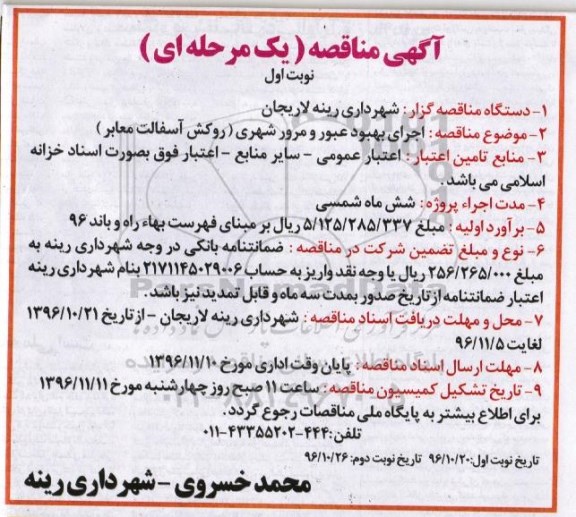 آگهی مناقصه ( یک مرحله ای )
نوبت اول
۱- دستگاه مناقصه گزار : شهرداری رینه لاریجان
۲- موضوع مناقصه : اجرای بهبود عبور و مرور شهری ( روکش آسفالت معابر )
۳- منابع تامین اعتبار : اعتبار عمومی - سایر منابع - اعتبار فوق بصورت اسناد خزانه
اسلامی می باشد .
۴- مدت اجراء پروژه : شش ماه شمسی
۵- برآورد اولیه : مبلغ ۵/۱۲۵/۲۸۵/۳۳۷ ریال بر مبنای فهرست بهاء راه و باند ۹۶
۶- نوع و مبلغ تضمین شرکت در مناقصه : ضمانتنامه بانکی در وجه شهرداری رینه به
مبلغ ۲۵۶/۲۶۵/۰۰۰ ریال یا وجه نقد واریز به حساب ۲۱۷۱۱۴۵۰۲۹۰۰۶ بنام شهرداری رینه
اعتبار ضمانتنامه از تاریخ صدور بمدت سه ماه و قابل تمدید نیز باشد.
۷- محل و مهلت دریافت اسناد مناقصه : شهرداری رینه لاریجان - از تاریخ ۱۳۹۶/۱۰/۲۱
لغایت ۹۶/۱۱/۵
۸- مهلت ارسال اسناد مناقصه : پایان وقت اداری مورخ ۱۳۹۶/۱۱/۱۰
۹- تاریخ تشکیل کمیسیون مناقصه : ساعت ۱۱ صبح روز چهارشنبه مورخ ۱۳۹۶/۱۱/۱۱
برای اطلاع بیشتر به پایگاه ملی مناقصات رجوع گردد.
تلفن: ۴۴۴-۴۳۳۵۵۲۰۲-۰۱۱
تاریخ نوبت اول: ۹۶/۱۰/۲۰ تاریخ نوبت دوم: ۹۶/۱۰/۲۶
محمد خسروی - شهرداری رینه